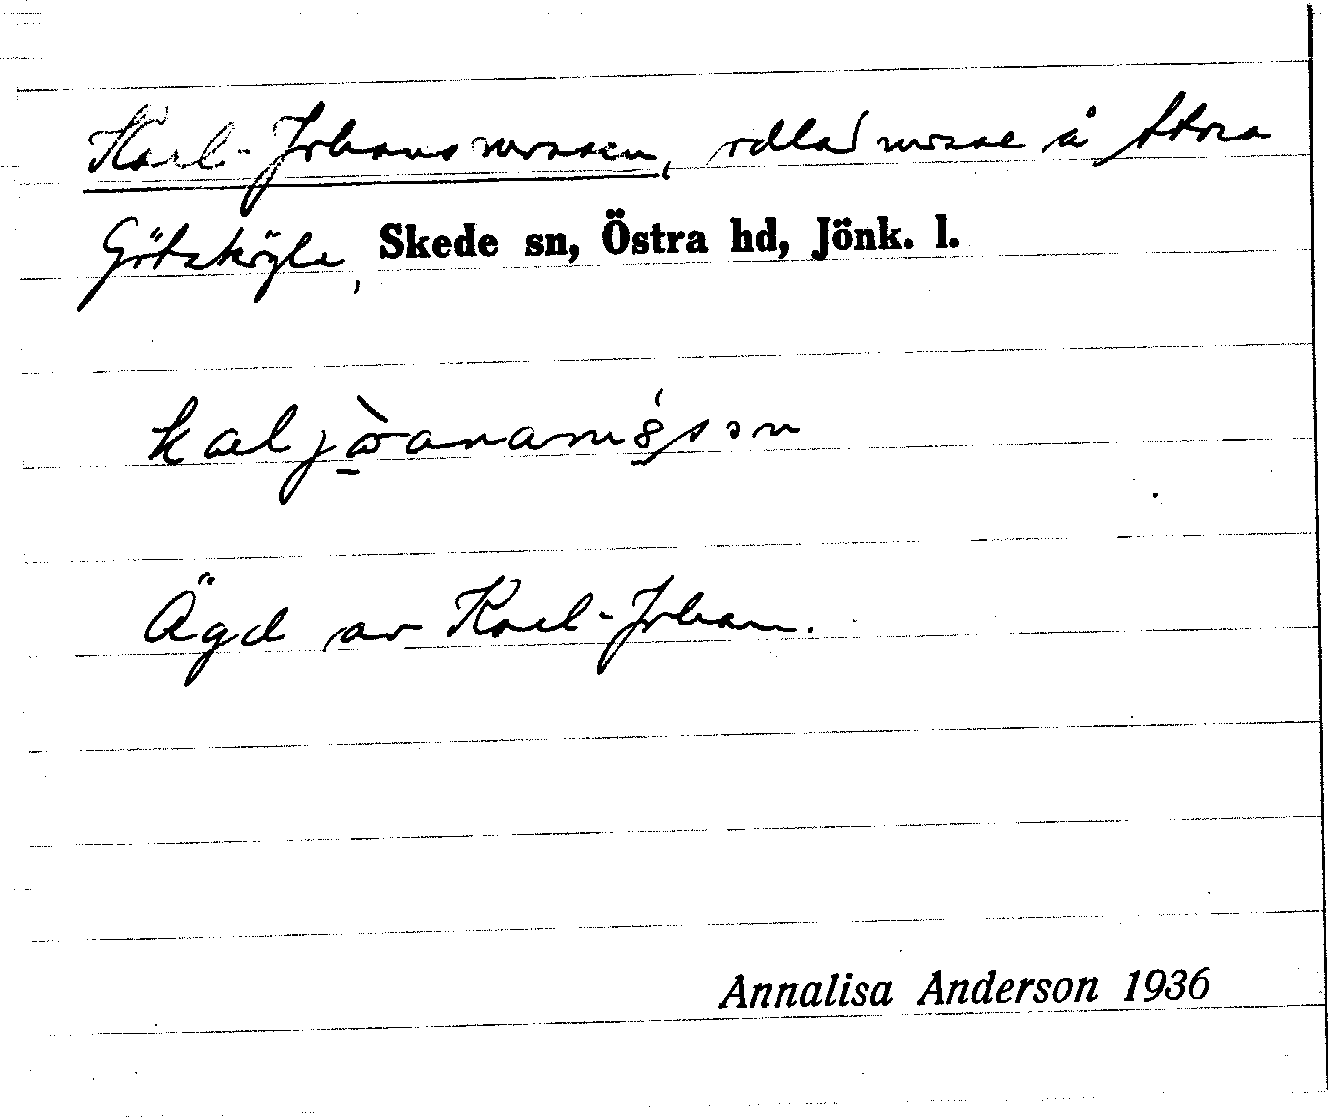 Karl-Johansmossen, odlad mosse å Stora
Götsböle, Skede sn, Östra hd, Jönk. l.
Ägd av Karl-Johan.
Annalisa Anderson 1936